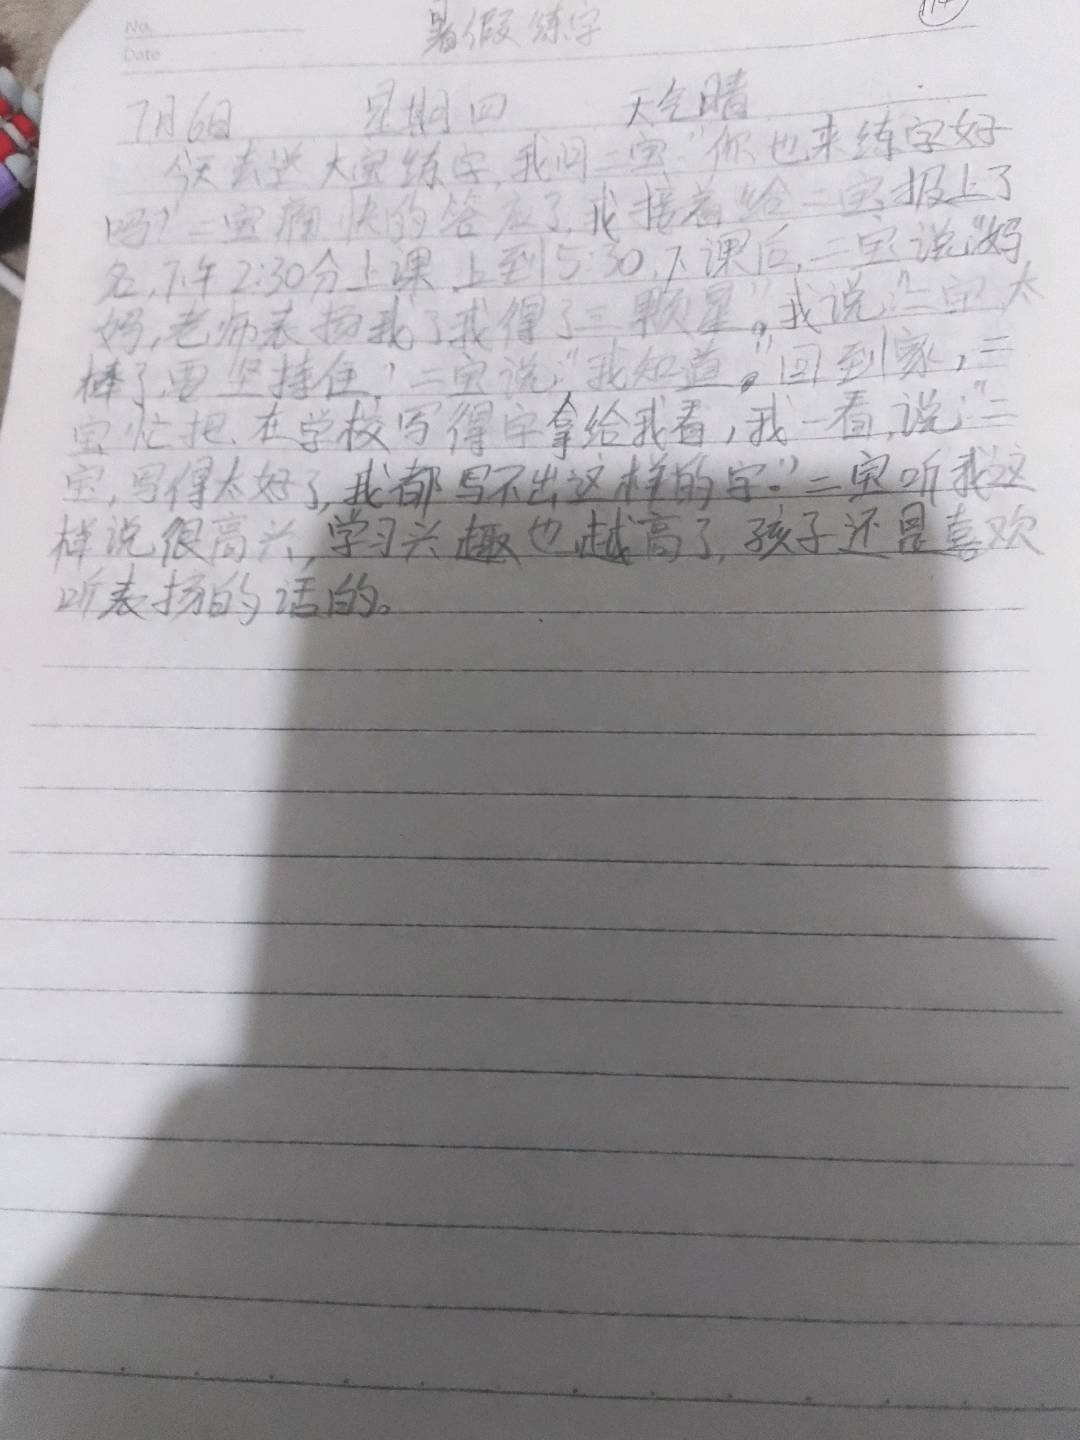 No.
Date
暑假练字
7月6日 星期四 天气晴
今天去送大宝练字,我问二宝:"你也来练字好
吗?"二宝痛快的答应了,我接着给二宝报上了
名,下午2:30分上课,上到5:30,下课后,二宝说:"妈
妈,老师表扬我了我得了三颗星"。我说:"二宝太
棒了,要坚持住。"二宝说:"我知道。"回到家,二
宝忙把在学校写得字拿给我看,我一看,说:"二
宝,写得太好了,我都写不出这样的字。"二宝听我这
样说很高兴,学习兴趣也越高了,孩子还是喜欢
听表扬的话的。